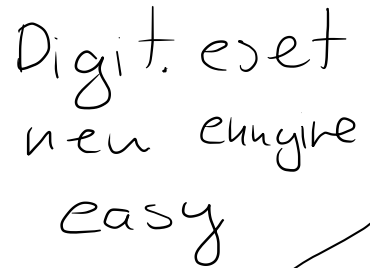 Digit. eset
nem ennyire
easy